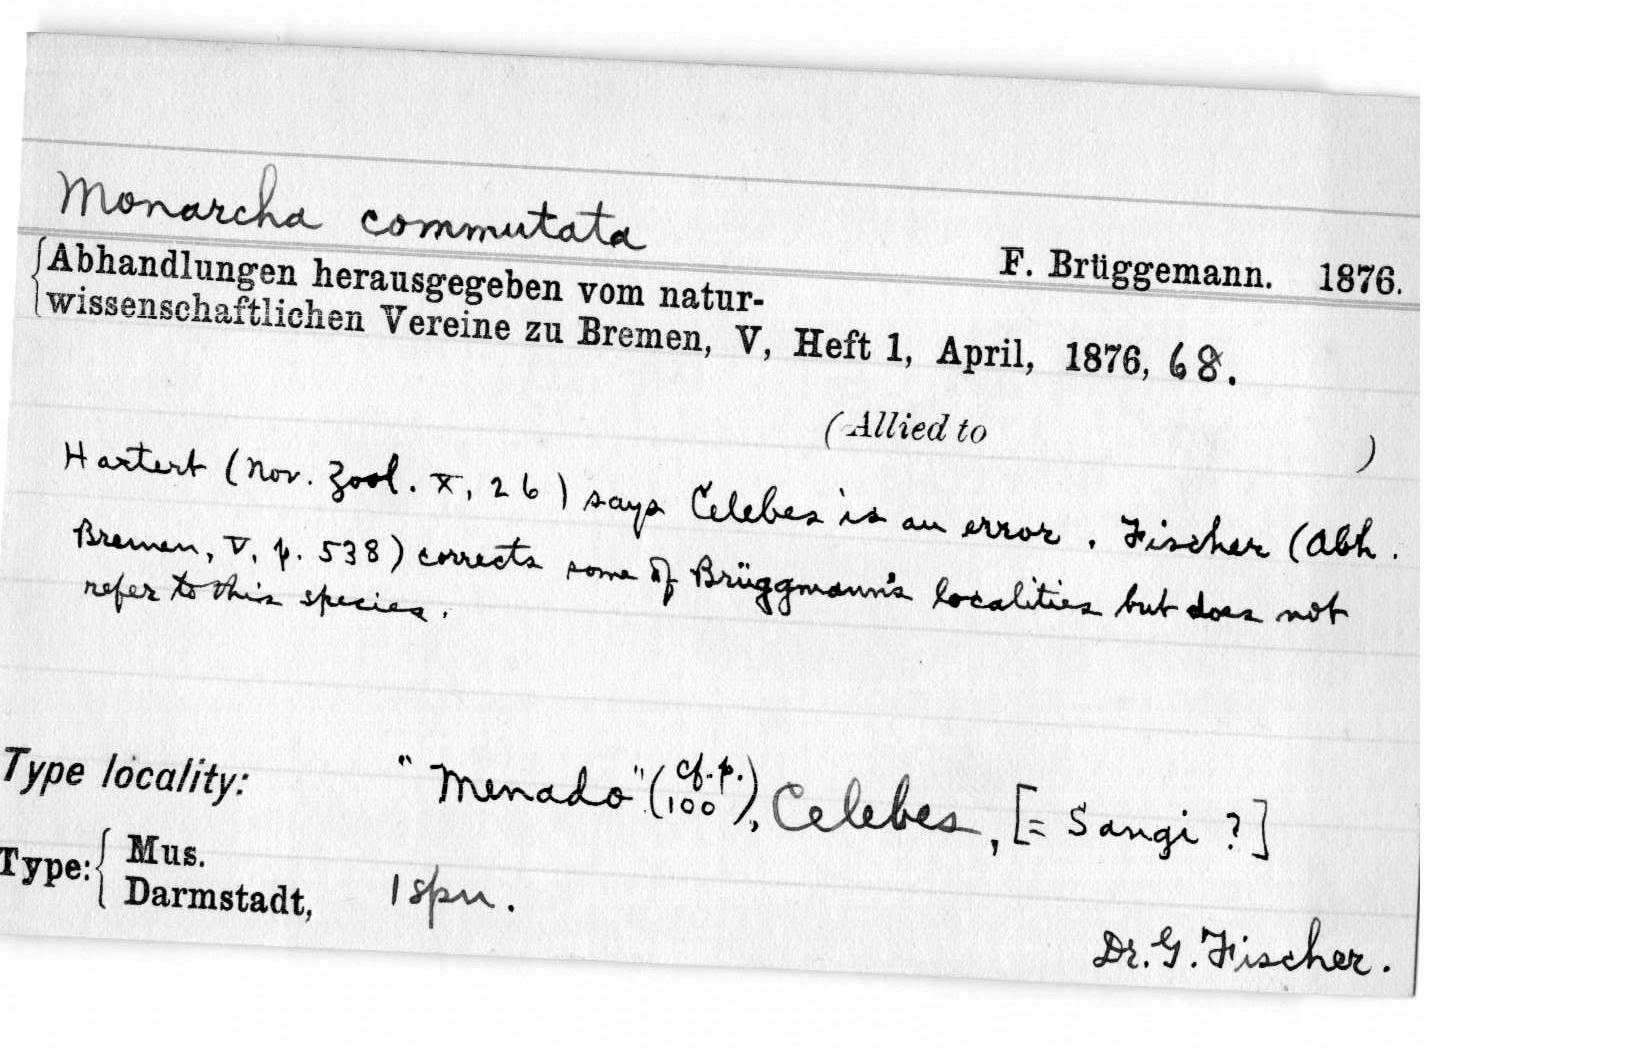 Monarcha commutata
F. Brüggemann. 1876.
Abhandlungen herausgegeben vom natur-
wissenschaftlichen Vereine zu Bremen, V, Heft 1, April, 1876, 68.
(Allied to )
Hartert (Nov. Zool. X, 26) says Celebes is an error. Fischer (Abh.
Bremen, V, p. 538) corrects some of Brüggmann's localities but does not
refer to this species.
Type locality: "Menado" (cf. p. 100), Celebes, [= Sangi ?]
Type: { Mus.
Darmstadt, 1 spn.
Dr. G. Fischer.